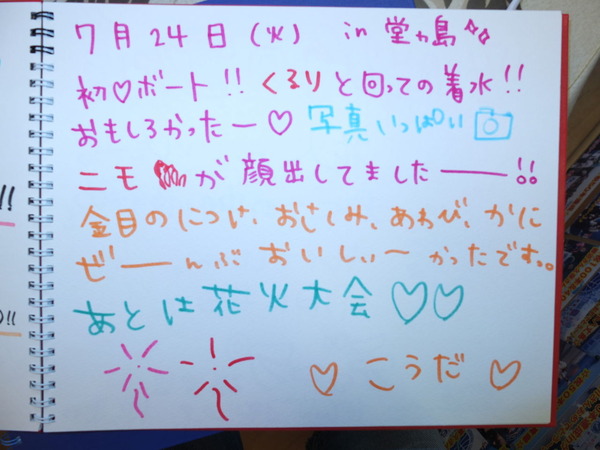 7月24日(火) in 堂ヶ島
初♡ボート!! くるりと回っての着水!!
おもしろかったー♡ 写真いっぱい
ニモが顔出してましたー!!
金目のにつけ、おさしみ、あわび、かに
ぜーんぶおいしぃ〜かったです。。
あとは花火大会♡♡
♡こうだ♡